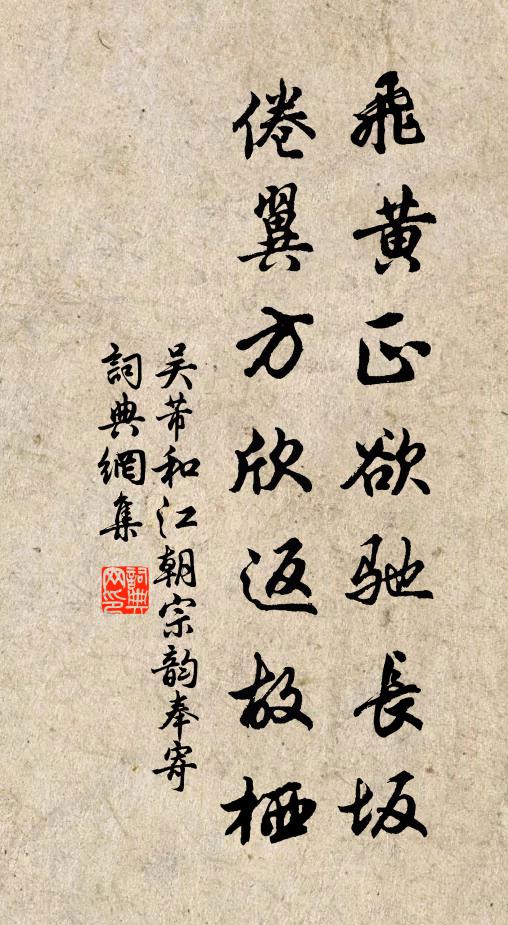 飛黄正欲馳長坂
倦翼方欣返故栖
吴芾和江朝宗韵奉寄
詞典網集
詞典网印